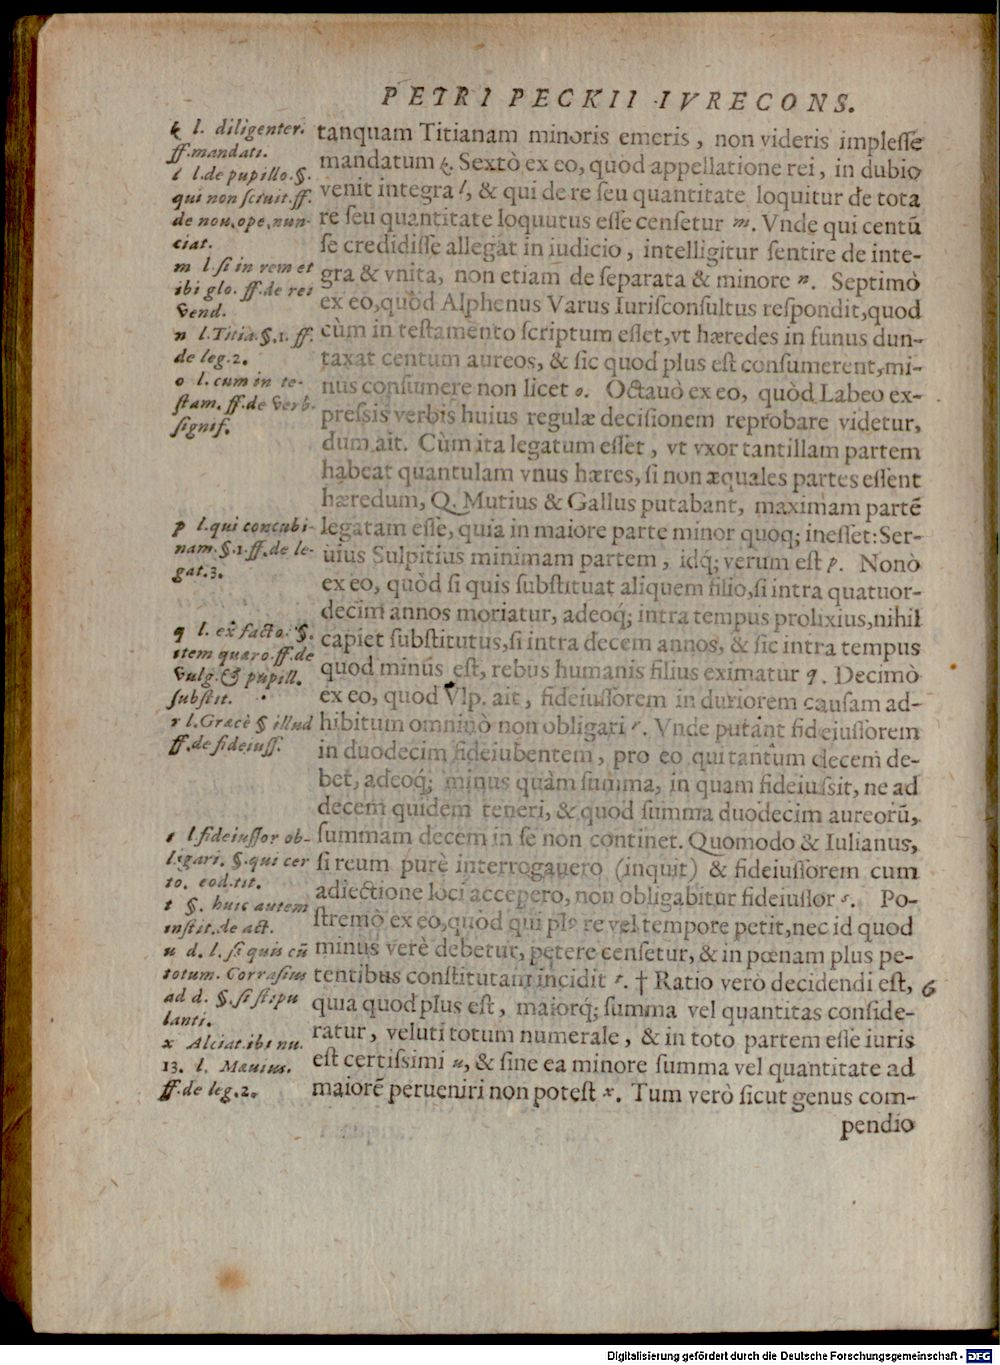 PETRI PECKII IVRECONS.
k l. diligenter.
ff.mandati.
l l.de pupillo.§.
qui non sciuit.ff.
de nou.ope.nun-
ciat.
m l.si in rem et
ibi glo. ff.de rei
vend.
n l.Titia.§.1.ff.
de leg.2.
o l.cum in te-
stam.ff.de verb.
signif.
p l.qui concubi-
nam.§.1.ff.de le-
gat.3.
q l.ex facto.§.
item quæro.ff.de
vulg.& pupill.
substit.
r l.Græcè § illud
ff.de fideiuss.
s l.fideiussor ob-
ligari. §.qui cer
to. eod.tit.
t §. huic autem
instit.de act.
u d. l.si quis cū
totum. Corrasius
ad d. §.si stipu
lanti.
x Alciat.ibi nu.
13. l. Mæuius.
ff.de leg.2.
tanquam Titianam minoris emeris, non videris implesse
mandatum k. Sextò ex eo, quòd appellatione rei, in dubio
venit integra l, & qui de re seu quantitate loquitur de tota
re seu quantitate loquutus esse censetur m. Vnde qui centū
se credidisse allegat in iudicio, intelligitur sentire de inte-
gra & vnita, non etiam de separata & minore n. Septimò
ex eo,quòd Alphenus Varus Iurisconsultus respondit,quod
cùm in testamento scriptum esset,vt hæredes in funus dun-
taxat centum aureos, & sic quod plus est consumerent,mi-
nus consumere non licet o. Octauò ex eo, quòd Labeo ex-
pressis verbis huius regulæ decisionem reprobare videtur,
dum ait. Cùm ita legatum esset, vt vxor tantillam partem
habeat quantulam vnus hæres, si non æquales partes essent
hæredum, Q. Mutius & Gallus putabant, maximam partē
legatam esse, quia in maiore parte minor quoq; inesset:Ser-
uius Sulpitius minimam partem, idq; verum est p. Nonò
ex eo, quòd si quis substituat aliquem filio,si intra quatuor-
decim annos moriatur, adeoq; intra tempus prolixius,nihil
capiet substitutus,si intra decem annos, & sic intra tempus
quod minus est, rebus humanis filius eximatur q. Decimò
ex eo, quod Vlp. ait, fideiussorem in duriorem causam ad-
hibitum omninò non obligari r. Vnde putant fideiussorem
in duodecim fideiubentem, pro eo qui tantùm decem de-
bet, adeoq; minus quàm summa, in quam fideiussit, ne ad
decem quidem teneri, & quod summa duodecim aureorū,
summam decem in se non continet. Quomodo & Iulianus,
si reum purè interrogauero (inquit) & fideiussorem cum
adiectione loci accepero, non obligabitur fideiussor s. Po-
stremò ex eo,quòd qui plꝰ re vel tempore petit,nec id quod
minus verè debetur, petere censetur, & in pœnam plus pe-
tentibus constitutam incidit t. † Ratio verò decidendi est, 6
quia quod plus est, maiorq; summa vel quantitas conside-
ratur, veluti totum numerale, & in toto partem esse iuris
est certissimi u, & sine ea minore summa vel quantitate ad
maiorē perueniri non potest x. Tum verò sicut genus com-
pendio
Digitalisierung gefördert durch die Deutsche Forschungsgemeinschaft - DFG